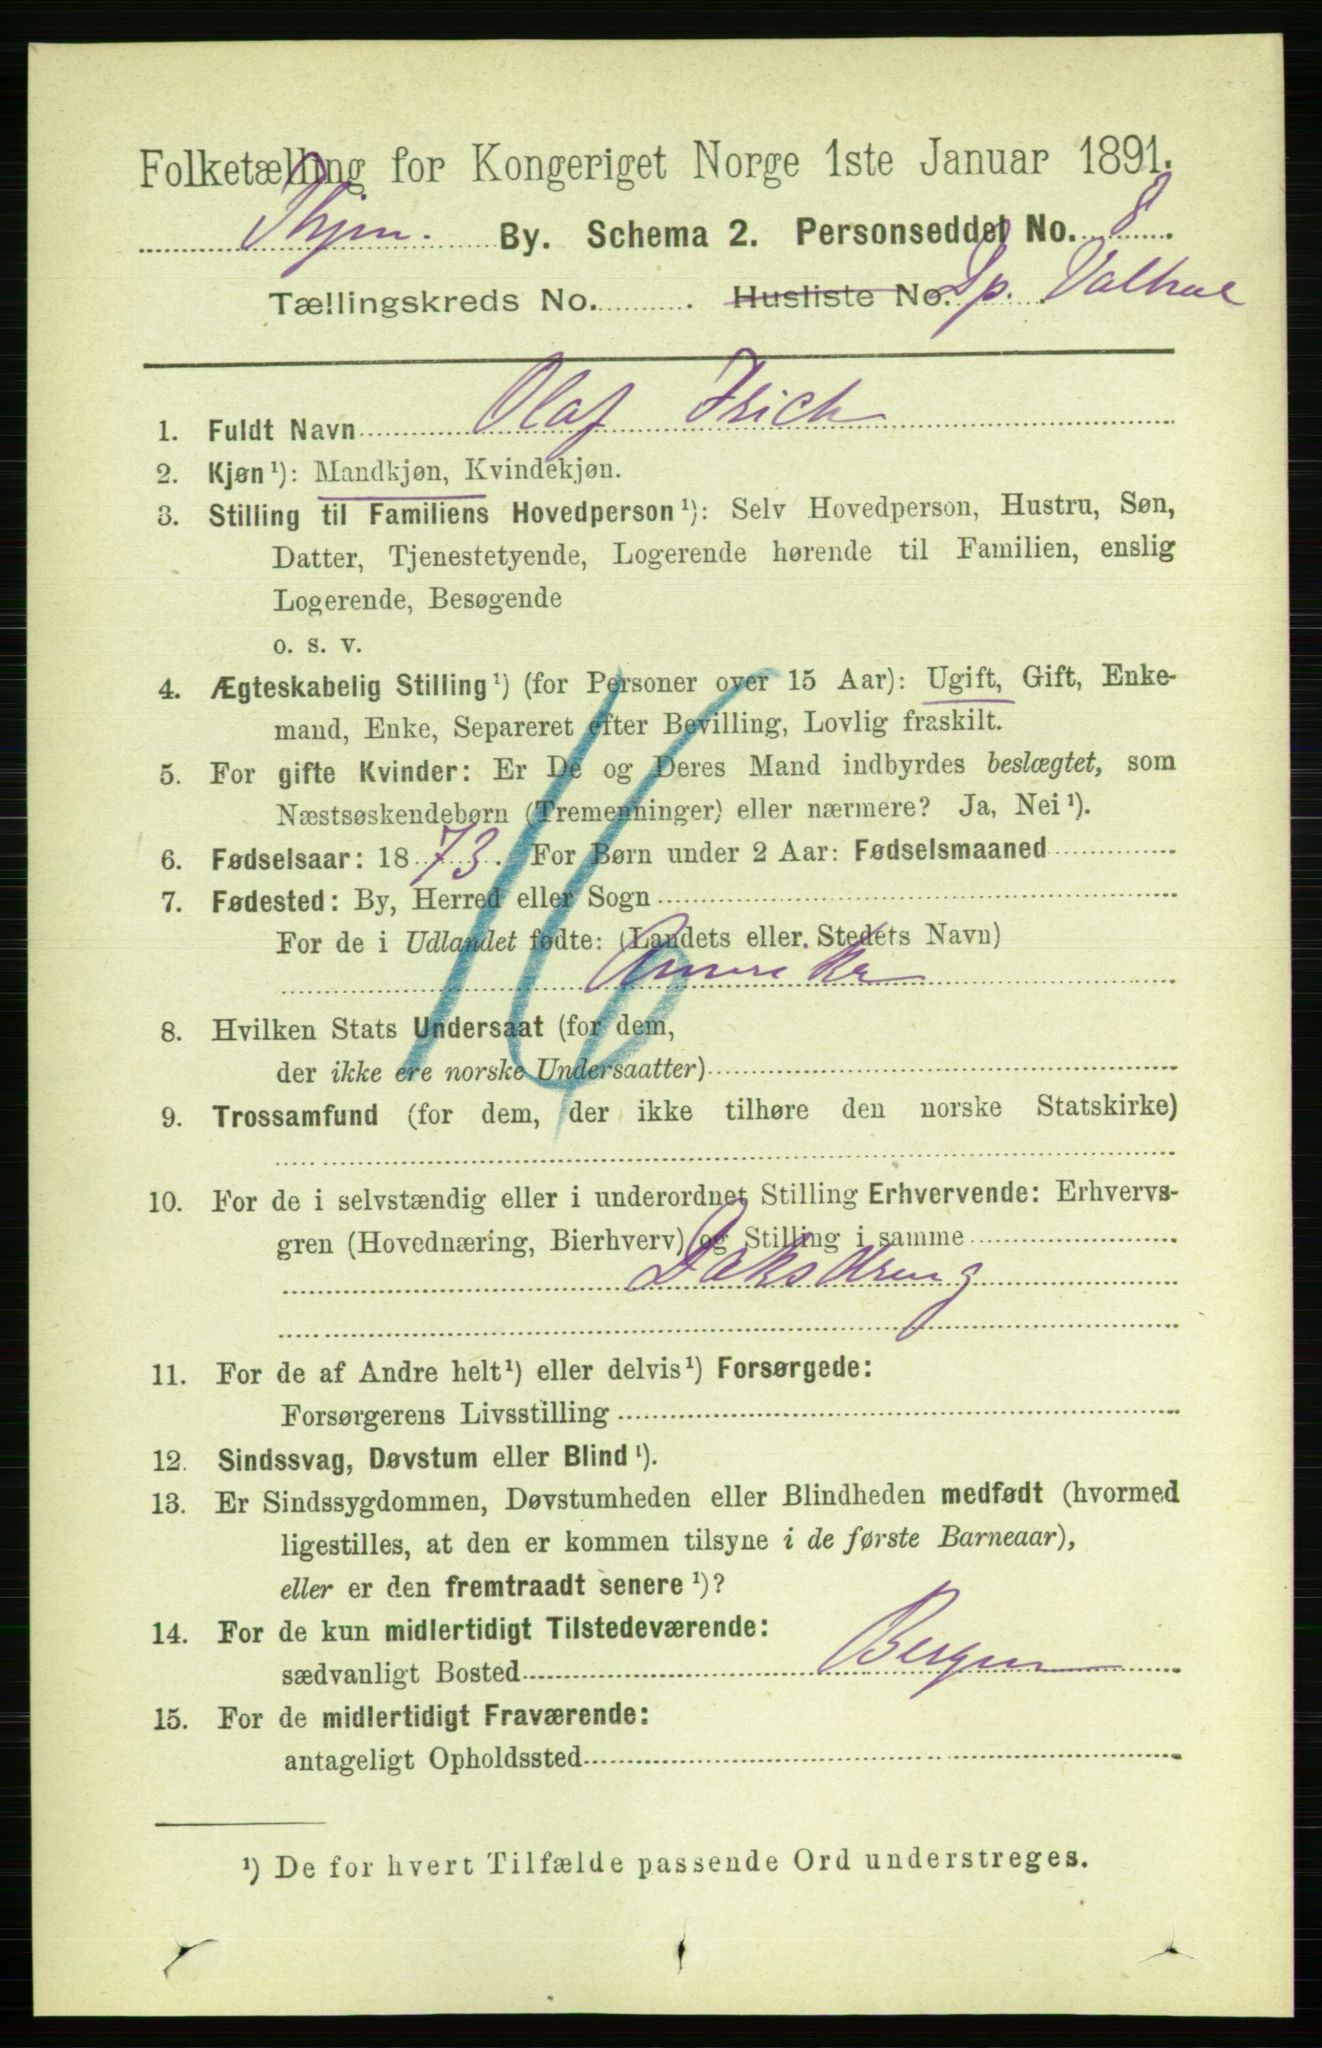 Folketælling for Kongeriget Norge 1ste Januar 1891.
Thjem. By. Schema 2. Personseddel No. 8.
Tællingskreds No. . Husliste No. Sp. Valhal
1. Fuldt Navn Olaf Frich
2. Kjøn ¹): Mandkjøn, Kvindekjøn.
3. Stilling til Familiens Hovedperson ¹): Selv Hovedperson, Hustru, Søn,
Datter, Tjenestetyende, Logerende hørende til Familien, enslig
Logerende, Besøgende
o. s. v.
4. Ægteskabelig Stilling ¹) (for Personer over 15 Aar): Ugift, Gift, Enke-
mand, Enke, Separeret efter Bevilling, Lovlig fraskilt.
5. For gifte Kvinder: Er De og Deres Mand indbyrdes beslægtet, som
Næstsøskendebørn (Tremenninger) eller nærmere? Ja, Nei ¹).
6. Fødselsaar: 1873. For Børn under 2 Aar: Fødselsmaaned
7. Fødested: By, Herred eller Sogn
For de i Udlandet fødte: (Landets eller Stedets Navn)
Amerika
16
8. Hvilken Stats Undersaat (for dem,
der ikke ere norske Undersaatter)
9. Trossamfund (for dem, der ikke tilhøre den norske Statskirke)
10. For de i selvstændig eller i underordnet Stilling Erhvervende: Erhvervs-
gren (Hovednæring, Bierhverv) og Stilling i samme
Dæksdreng
11. For de af Andre helt ¹) eller delvis ¹) Forsørgede:
Forsørgerens Livsstilling
12. Sindssvag, Døvstum eller Blind ¹).
13. Er Sindssygdommen, Døvstumheden eller Blindheden medfødt (hvormed
ligestilles, at den er kommen tilsyne i de første Barneaar),
eller er den fremtraadt senere ¹)?
14. For de kun midlertidigt Tilstedeværende:
sædvanligt Bosted Bergen
15. For de midlertidigt Fraværende:
antageligt Opholdssted
¹) De for hvert Tilfælde passende Ord understreges.